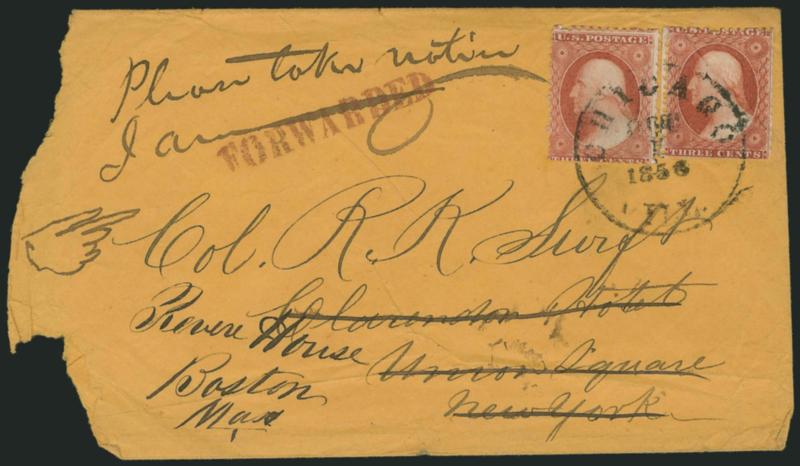 U.S. POSTAGE
THREE CENTS
U.S. POSTAGE
THREE CENTS
CHICAGO
1
1858
ILL.
Please take notice
I am
FORWARDED
Col. R. K. Swift
Clarendon Hotel
Union Square
New York
Revere House
Boston
Mas